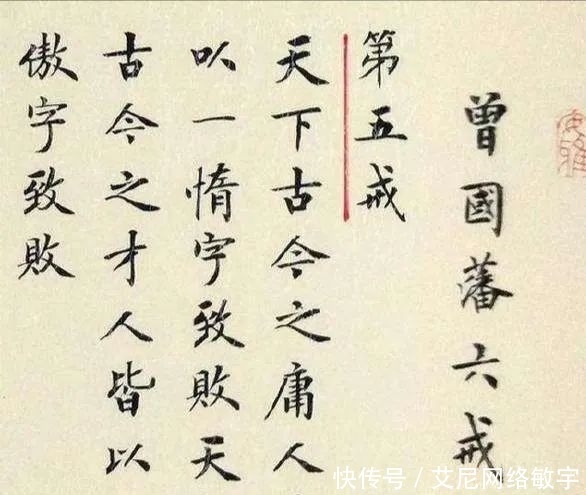 曾國藩六戒
第五戒
天下古今之庸人
㕥一惰字致敗天
古今之才人皆以
傲字致敗
快传号/艾尼网络敏宇